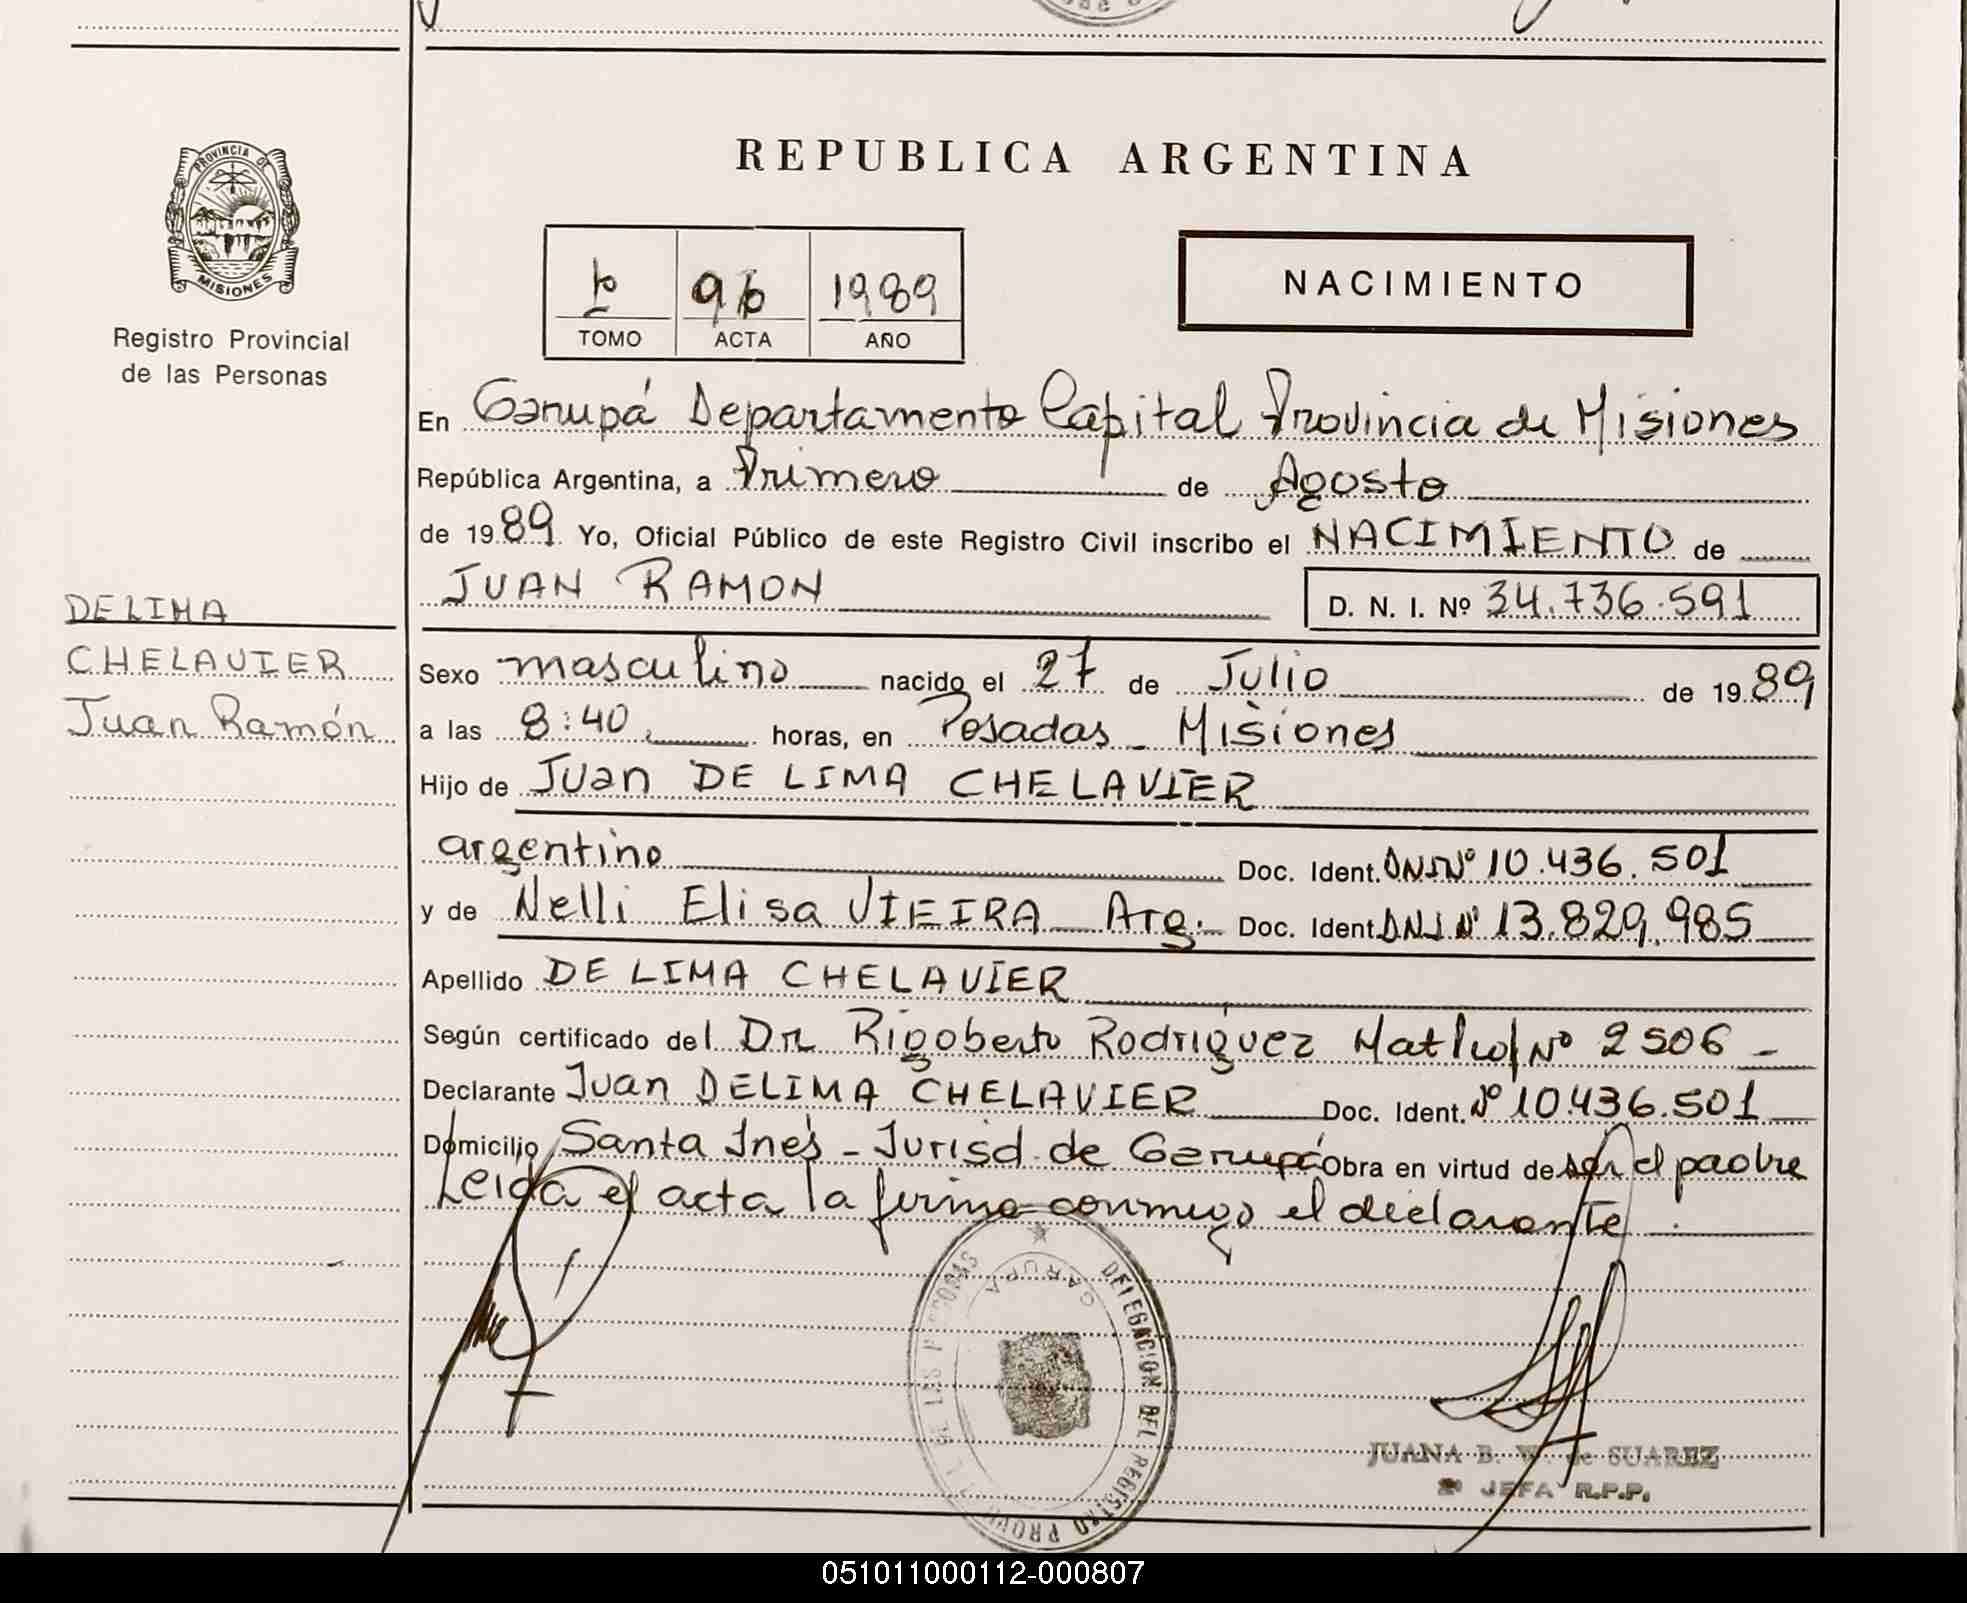 PROVINCIA DE
MISIONES
Registro Provincial
de las Personas
DE LIMA
CHELAVIER
Juan Ramón
REPUBLICA ARGENTINA
96 1989
TOMO ACTA AÑO
NACIMIENTO
En Garupá Departamento Capital Provincia de Misiones
República Argentina, a Primero de Agosto
de 1989 Yo, Oficial Público de este Registro Civil inscribo el NACIMIENTO de
JUAN RAMON D. N. I. Nº 34.736.591
Sexo masculino nacido el 27 de Julio de 1989
a las 8:40 horas, en Posadas - Misiones
Hijo de Juan DE LIMA CHELAVIER
argentino Doc. Ident. DNI Nº 10.436.501
y de Nelli Elisa VIEIRA Arg. Doc. Ident DNI Nº 13.829.985
Apellido DE LIMA CHELAVIER
Según certificado del Dr Rigoberto Rodriguez Nº 2506
Declarante Juan DE LIMA CHELAVIER Doc. Ident. Nº 10.436.501
Domicilio Santa Inés - Jurisd. de Garupá Obra en virtud de ser el padre
Leida el acta la firma conmigo el declarante
DELEGACION DEL REGISTRO PROVINCIAL DE LAS PERSONAS
GARUPA
JUANA B. W. de SUAREZ
JEFA R.P.P.
051011000112-000807